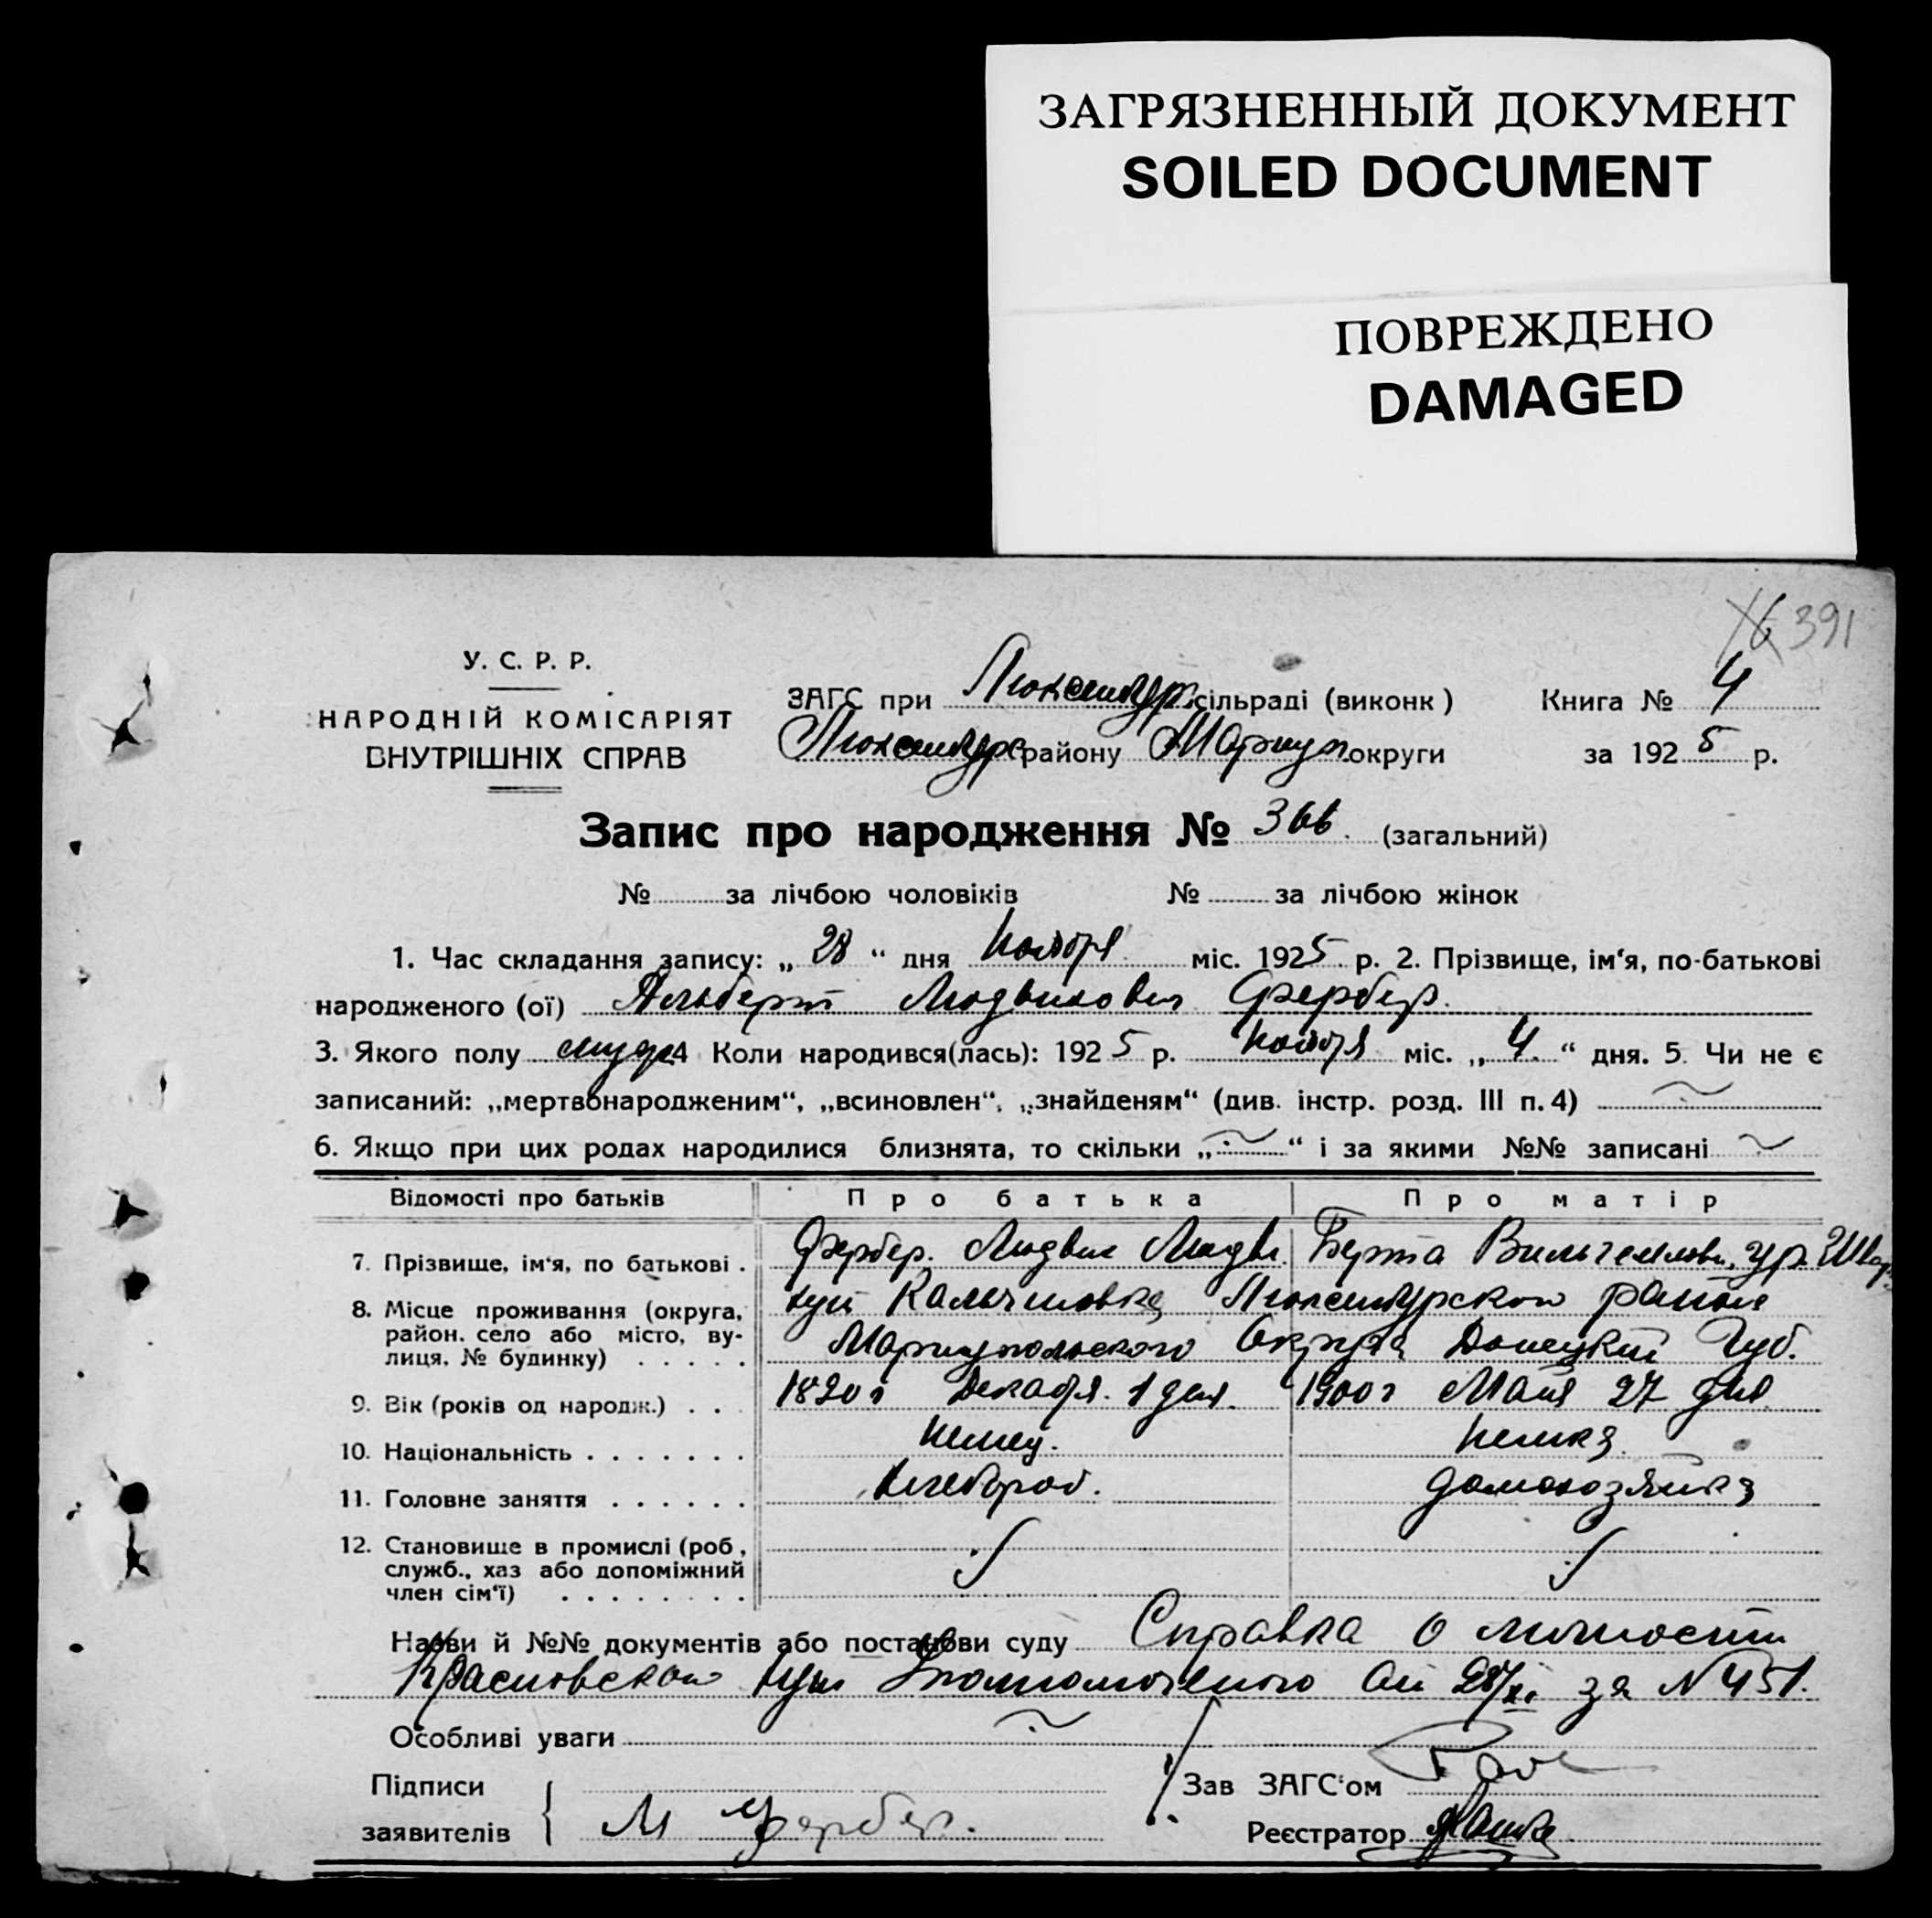 ЗАГРЯЗНЕННЫЙ ДОКУМЕНТ
SOILED DOCUMENT
ПОВРЕЖДЕНО
DAMAGED
391
У. С. Р. Р.
НАРОДНІЙ КОМІСАРІЯТ
ВНУТРІШНІХ СПРАВ
ЗАГС при Люксембур. сільраді (виконк)
Люксембург району Мариуп. округи
Книга № 4
за 1925 р.
Запис про народження № 366. (загальний)
№ за лічбою чоловіків № за лічбою жінок
1. Час складання запису: „28“ дня Ноября міс. 1925 р. 2. Прізвище, ім‘я, по-батькові
народженого (ої) Альберт Людвикович Фербер.
3. Якого полу 4 Коли народився(лась): 1925 р. Ноября міс. „4.“ дня. 5. Чи не є
записаний: „мертвонародженим“, „всиновлен“, „знайденям“ (див. інстр. розд. III п. 4)
6. Якщо при цих родах народилися близнята, то скільки „ “ і за якими №№ записані
Відомості про батьків Про батька Про матір
7. Прізвище, ім‘я, по батькові . Фербер. Людвиг Людви. Берта Вильгельмовн. ур. Швар
8. Місце проживання (округа, район, село або місто, ву- лиця, № будинку) . . . . . Кальчиновка Люксембурского района
Мариупольского Округа Донецкий Губ.
9. Вік (років од народж.) . . . 1890 г Декабря 1 дня. 1900 г Мая 27 дня
10. Національність . . . . . . . Немец. Немка
11. Головне заняття . . . . . . Хлебороб. домохозяйка
12. Становище в промислі (роб., служб., хаз або допоміжний член сім‘ї) . . . . . . . .
Назви й №№ документів або постанови суду Справка о личности
Уполномоченого от 28/XI за № 451.
Особливі уваги
Підписи
заявителів М Фербер.
Зав ЗАГС‘ом
Реєстратор